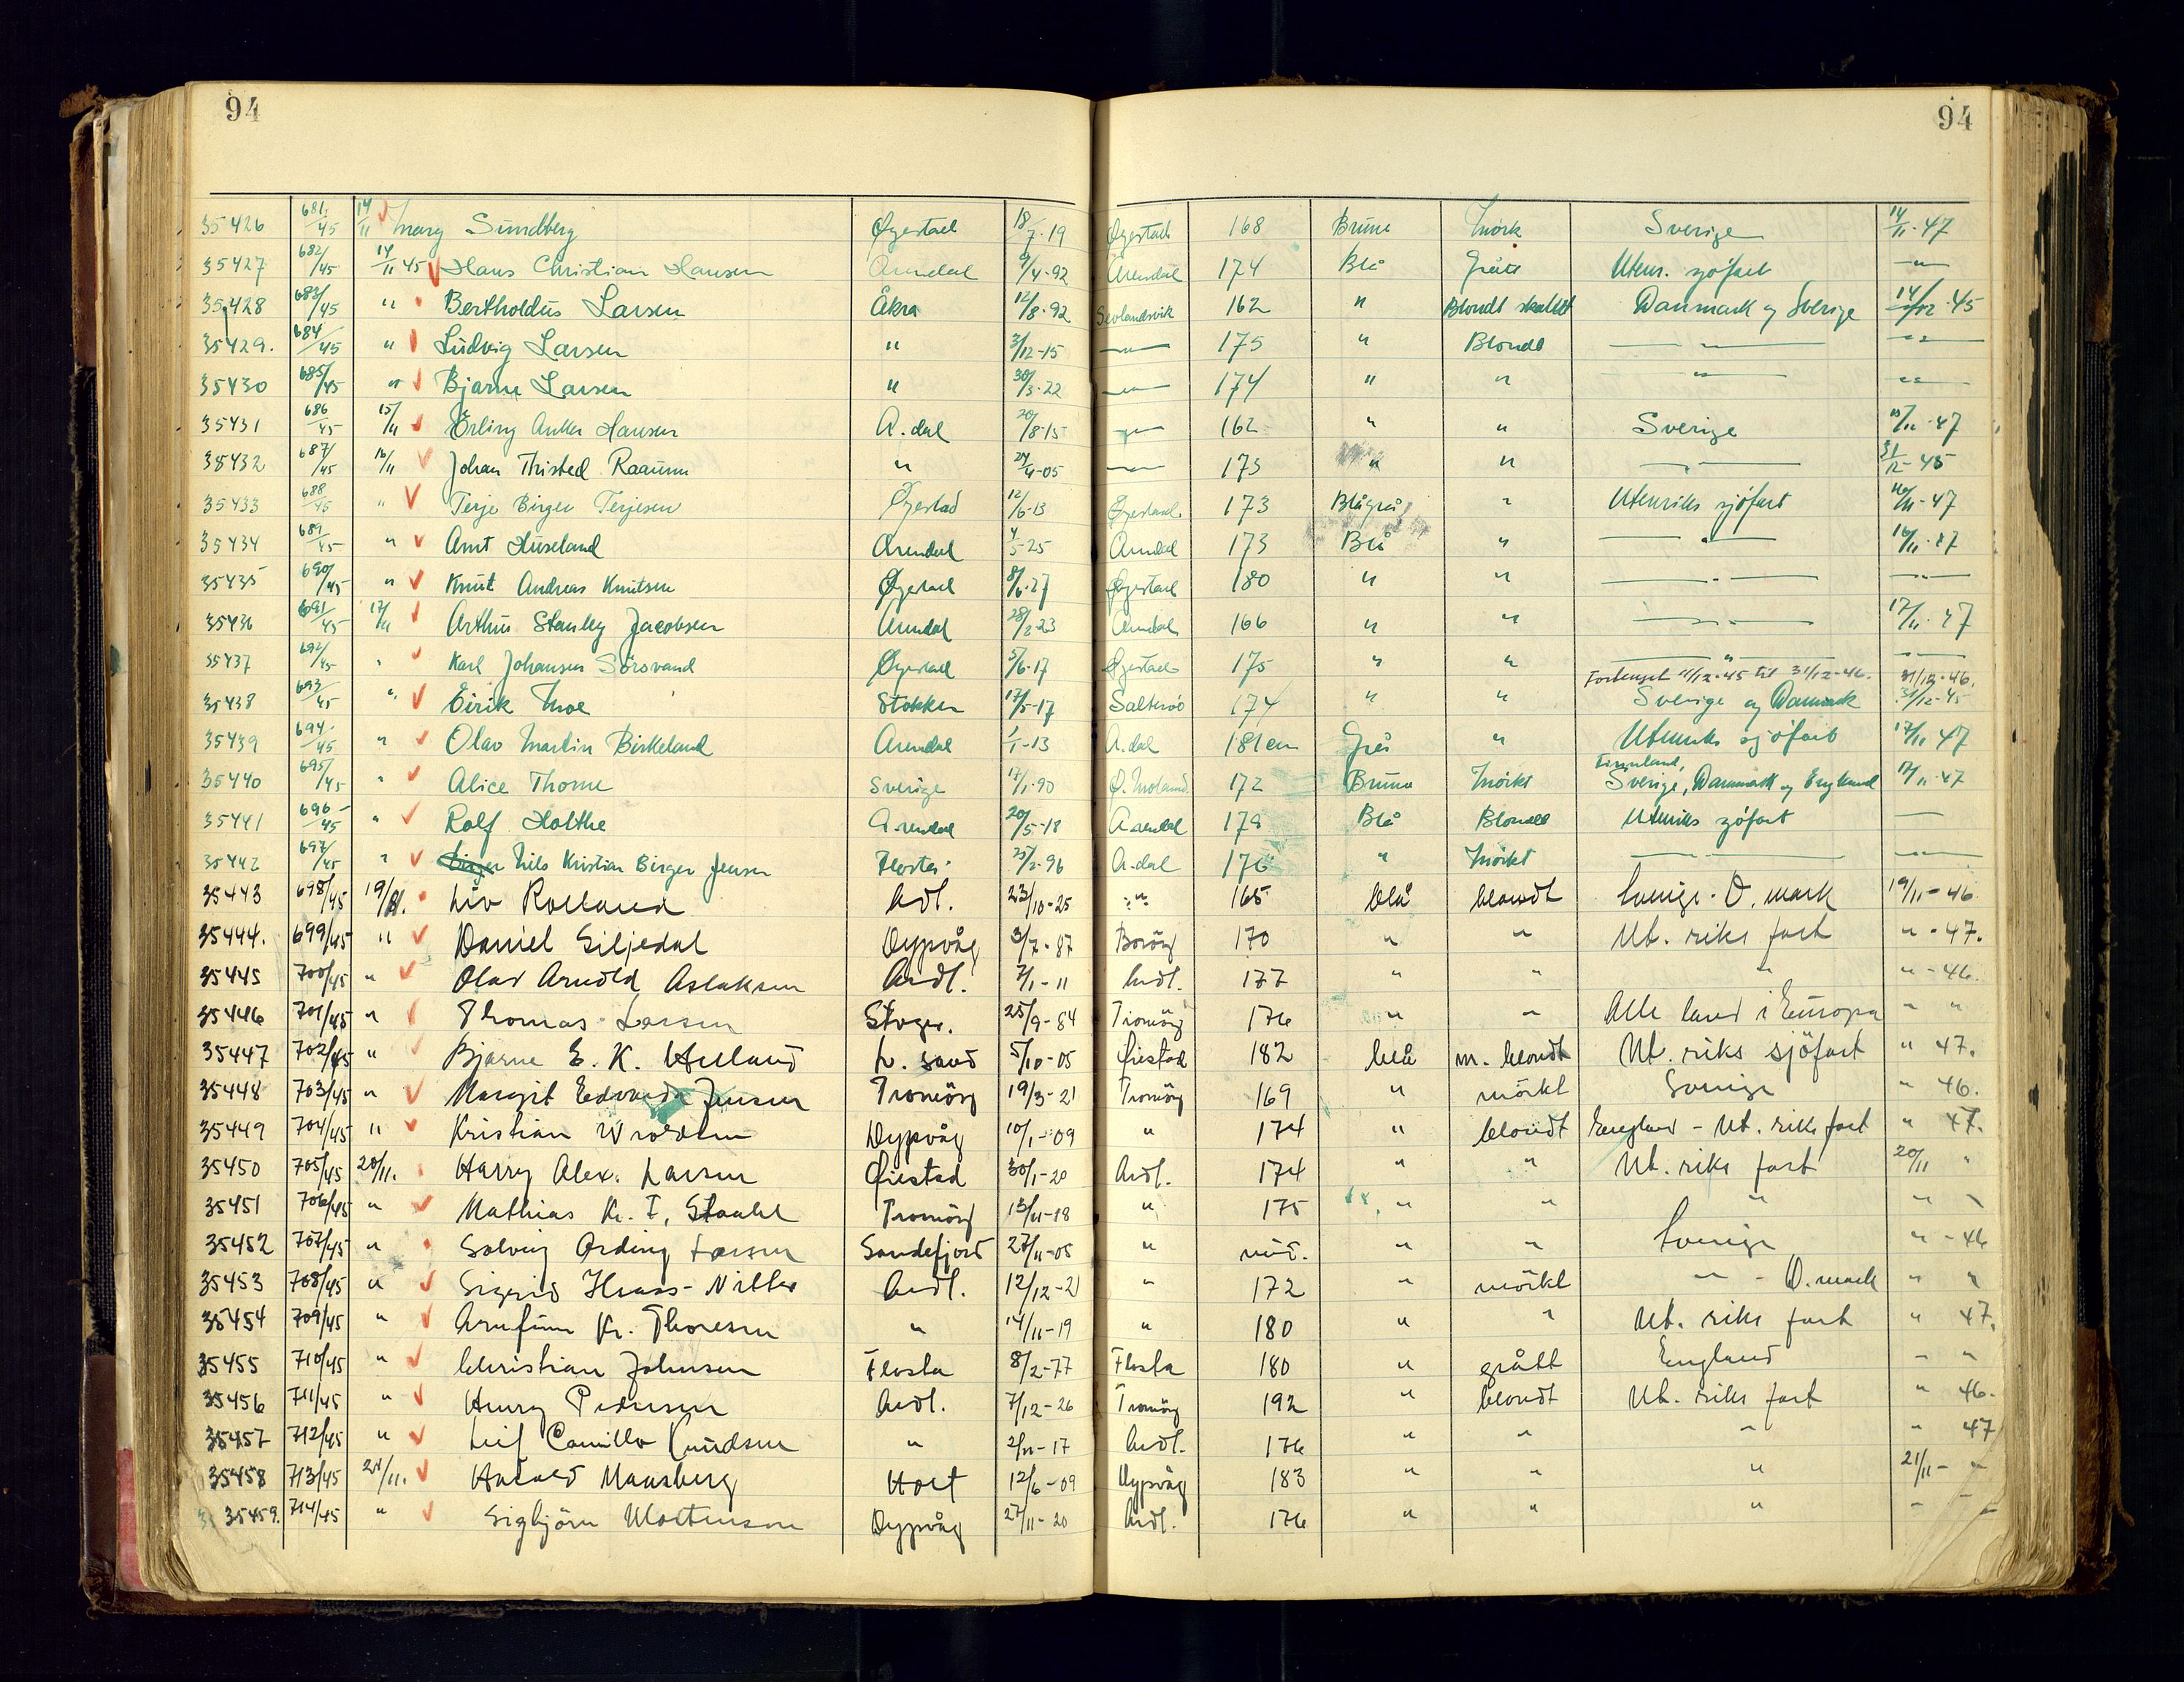 94 94
35426 681/45 14/11 Mary Sundberg Øyestad 18/7-19 Øyestad 168 Brune Mörk Sverige 14/11-47
35427 682/45 14/11 45 Hans Christian Hansen Arendal 9/4-92 Arendal 174 Blå Grått Utenr. sjöfart -"-
35428 683/45 " Bertholdus Larsen Åkra 12/8-92 Sevlandsvik 162 " Blondt skallet Danmark og Sverige 14/12-45
35429. 684/45 " Ludvig Larsen " 3/12-15 -"- 175 " Blondt -"- -"-
35430 685/45 " Bjarne Larsen " 30/3-22 -"- 174 " " -"- -"-
35431 686/45 15/11 Erling Anker Hansen A.dal 20/8-15 -"- 162 " " Sverige 15/11-47
35432 687/45 16/11 Johan Thisted Raaum " 24/4-05 -"- 173 " " -"- 31/12-45
35433 688/45 " Terje Birger Terjesen Øyestad 12/6-13 Øyestad. 173 Blågrå " Utenriks sjöfart 16/11-47
35434 689/45 " Arnt Huseland Arendal 4/5-25 Arendal 173 Blå " -"- 16/11-47
35435 690/45 " Knut Andreas Knutsen Øyestad 8/6-27 Øyestad 180 " " -"- -"-
35436 691/45 17/11 Arthur Stanley Jacobsen Arendal 28/2-23 Arendal 166 " " -"- 17/11-47
35437 692/45 " Karl Johansen Sörsvand Øyestad 5/6-17 Øyestad 175 " " -"- -"-
Forlenget 11/12-45 til 31/12-46. 31/12-46.
35438 693/45 " Eirik Moe Stokken 17/5-17 Salterö 174 " " Sverige og Danmark 31/12-45
35439 694/45 " Olav Martin Birkeland Arendal 1/1-13 A.dal 181cm Grå " Utenriks sjöfart 17/11 47
Finnland,
35440 695/45 " Alice Thorne Sverige 17/1-90 Ø. Moland 172 Brune Mörkt Sverige, Danmark og England 17/11-47
35441 696/45 " Rolf Holthe Arendal 20/5-18 Arendal 179 Blå Blondt Utenriks sjöfart -
35442 697/45 " Nils Kristian Birger Jensen Flosta 25/2-96 A.dal 176 " Mörkt -"- -"-
35443 698/45 19/11. Liv Rolland Adl. 23/10-25 -"- 165 blå blondt Sverige - D. mark 19/11-46
35444. 699/45 " Daniel Siljedal Dypvåg 3/7-87 Boröy 170 " " Ut. riks fart " - 47.
35445 700/45 " Olav Arnold Aslaksen Andl. 7/1-11 Andl. 177 " " " " - 46.
35446 701/45 " Thomas Larsen 25/9-84 Tromöy 176 " " Alle land i Europa " "
35447 702/45 " Bjarne E. K. L. sand 5/10-05 Öiestad 182 blå m. blondt Ut. riks sjöfart " 47.
35448 703/45 " Margit Edvarda Jensen Tromöy 19/3-21 Tromöy 169 " mörkt Sverige " 46.
35449 704/45 " Kristian Dypvåg 10/1-09 " 174 " blondt England - Ut. riks fart " 47.
35450 705/45 20/11. Harry Alex. Larsen Öiestad 30/1-20 Andl. 174 " " Ut. riks fart 20/11 "
35451 706/45 " Mathias Kr. F. Staahl Tromöy 13/11-18 " 175 " " " " "
35452 707/45 " Solveig Arding Larsen Sandefjord 27/11-05 " mid. " " Sverige " - 46
35453 708/45 " Sigrid Hraas-Nitter Andl. 12/12-21 " 172 " mörkt " - D. mark " "
35454 709/45 " Arnfinn Kr. Thoresen " 14/11-19 " 180 " " Ut. riks fart " 47.
35455 710/45 " Christian Johnsen Flosta 8/2-77 Flosta 180 " grått England " "
35456 711/45 " Henry Pedersen Andl. 7/12-26 Tromöy 192 " blondt Ut. riks fart " 46.
35457 712/45 " Leif Camillo Knudsen " 2/11-17 Andl. 176 " " " " 47
35458 713/45 21/11. Harald Maasberg Holt 12/6-09 Dypvåg 183 " " " 21/11- "
35459. 714/45 " Sigbjörn Mortenson Dypvåg 27/11-20 Andl. 176 " " " " "